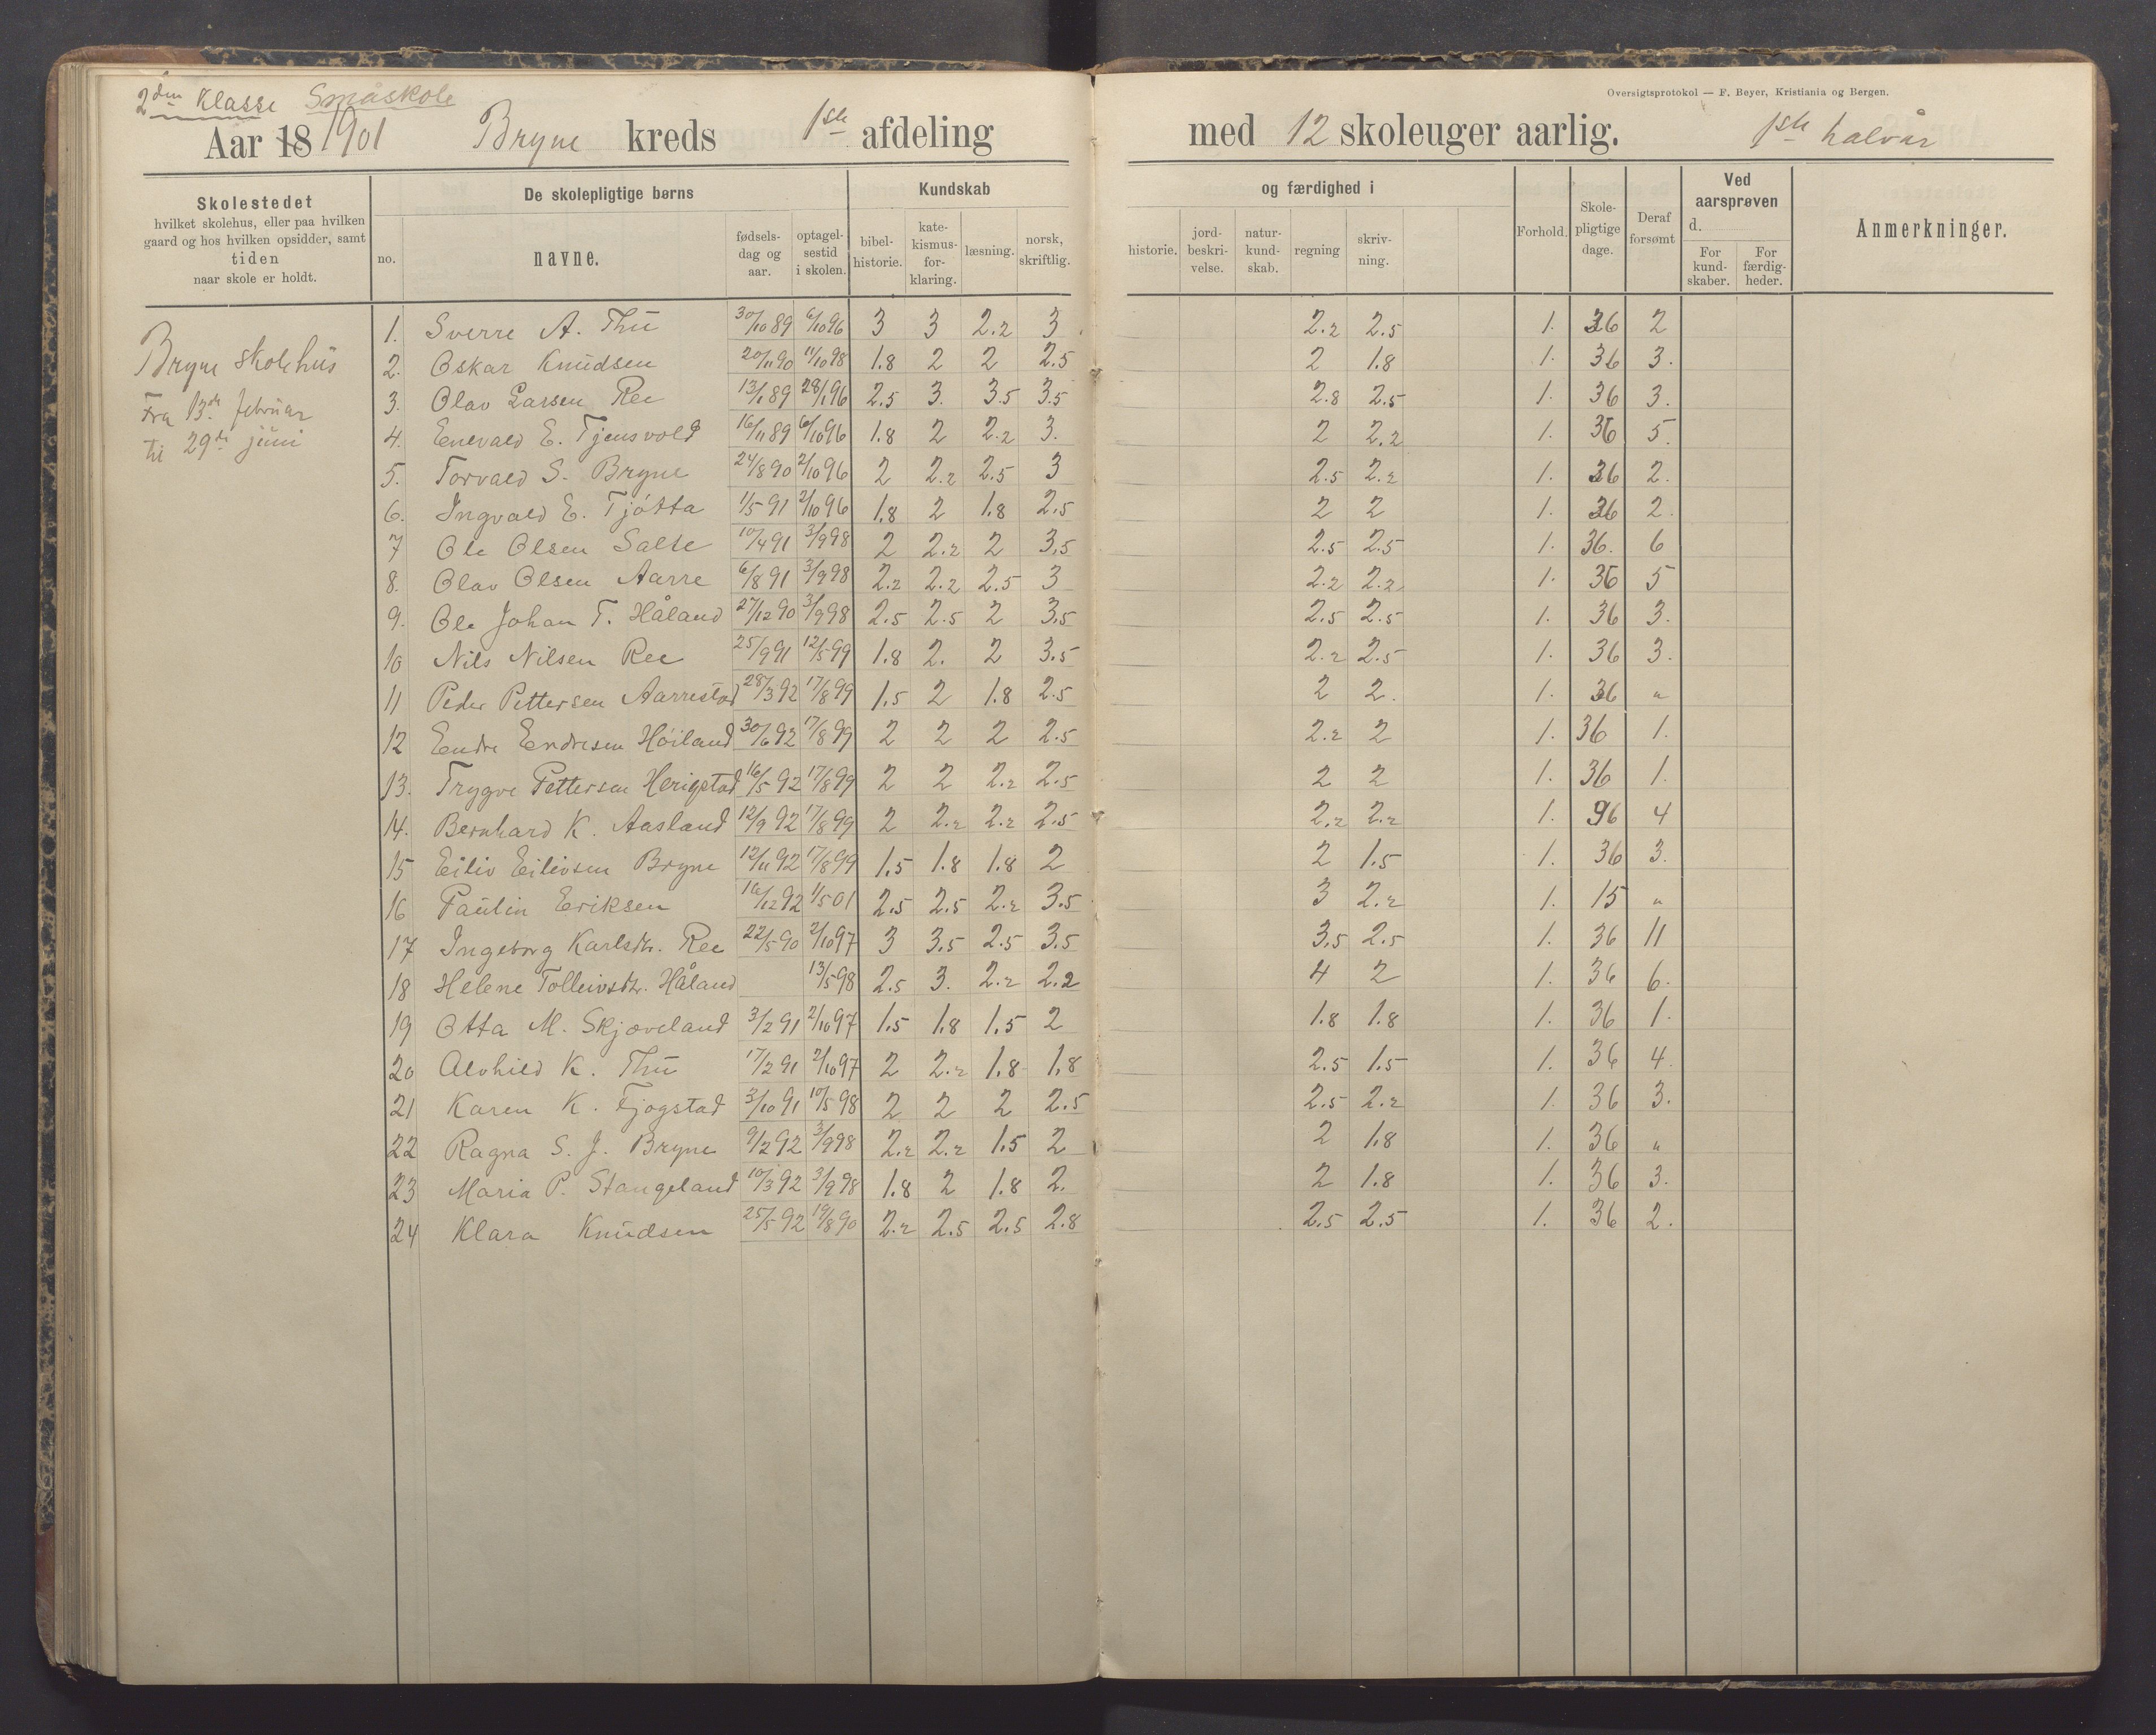 2den Klasse Småskole
Aar 18 1901 Bryne kreds 1ste afdeling
Oversigtsprotokol — F. Beyer, Kristiania og Bergen.
med 12 skoleuger aarlig. 1ste halvår
Skolestedet
hvilket skolehus, eller paa hvilken
gaard og hos hvilken opsidder, samt
tiden
naar skole er holdt.
De skolepligtige børns
no.
navne.
fødsels-
dag og
aar.
optagel-
sestid
i skolen.
Kundskab
bibel-
historie.
kate-
kismus-
for-
klaring.
læsning.
norsk,
skriftlig.
og færdighed i
historie.
jord-
beskri-
velse.
natur-
kund-
skab.
regning
skriv-
ning.
Forhold.
Skole-
pligtige
dage.
Deraf
forsømt
Ved
aarsprøven
d.
For
kund-
skaber.
For
færdig-
heder.
Anmerkninger.
Bryne skolehús
Fra 13de februar
til 29de júni
1. Sverre A. Thú 30/10 89 6/10 96 3 3 2.2 3 2.2 2.5 1. 36 2
2. Oskar Knúdsen 20/11 90 11/10 98 1.8 2 2 2.5 2 1.8 1. 36 3.
3. Olav Larsen Ree 13/1 89 28/1 96 2.5 3. 3.5 3.5 2.8 2.5 1. 36 3.
4. Enevald E. Tjensvold 16/11 89 6/10 96 1.8 2 2.2 3. 2 2.2 1. 36 5.
5. Torvald S. Bryne 24/8 90 2/10 96 2 2.2 2.5 3 2.5 2.2 1. 36 2.
6. Ingvald E. Tjötta 1/5 91 2/10 96 1.8 2 1.8 2.5 2 2 1. 36 2.
7 Ole Olsen Salte 10/4 91 3/9 98 2 2.2 2 3.5 2.5 2.5 1. 36. 6
8. Olav Olsen Aarre 6/8 91 3/9 98 2.2 2.2 2.5 3 2.2 2.2 1. 36 5
9. Ole Johan T. Håland 27/12 90 3/9 98 2.5 2.5 2 3.5 2.5 2.5 1. 36 3.
10 Nils Nilsen Ree 25/9 91 12/5 99 1.8 2. 2 3.5 2.2 2.5 1. 36 3.
11 Peder Pettersen Aarrestad 28/3 92 17/8 99 1.5 2 1.8 2.5 2 2. 1. 36 "
12 Endre Endresen Höiland 30/6 92 17/8 99 2 2 2 2.5 2.2 2 1. 36 1.
13. Trygve Pettersen Herigstad 16/5 92 17/8 99 2 2 2.2 2.5 2 2 1. 36 1.
14. Bernhard K. Aasland 12/9 92 17/8 99 2 2.2 2.2 2.5 2.2 2.2 1. 96 4
15 Eiliv Eilivsen Bryne 12/11 92 17/8 99 1.5 1.8 1.8 2 2 1.5 1. 36 3.
16 Paulin Eriksen 16/12 92 1/5 01 2.5 2.5 2.2 3.5 3 2.2 1. 15 "
17 Ingeborg Karlsdtr. Ree 22/5 90 2/10 97 3 3.5 2.5 3.5 3.5 2.5 1. 36 11
18 Helene Tolleivsdtr. Håland 13/5 98 2.5 3. 2.2 2.2 4 2 1. 36 6.
19 Otta M. Skjæveland 3/2 91 2/10 97 1.5 1.8 1.5 2 1.8 1.8 1. 36 1.
20 Alvhild K. Thú 17/2 91 2/10 97 2 2.2 1.8 1.8 2.5 1.5 1. 36 4.
21 Karen K. Fjogstad 3/10 91 10/5 98 2 2 2 2.5 2.5 2.2 1. 36 3.
22 Ragna S. J. Bryne 9/2 92 3/9 98 2.2 2.2 1.5 2 2 1.8 1. 36 "
23 Maria P. Stangeland 10/3 92 3/9 98 1.8 2 1.8 2. 2 1.8 1. 36 3.
24 Klara Knúdsen 25/5 92 19/8 90 2.2 2.5 2.5 2.8 2.5 2.5 1. 36 2.